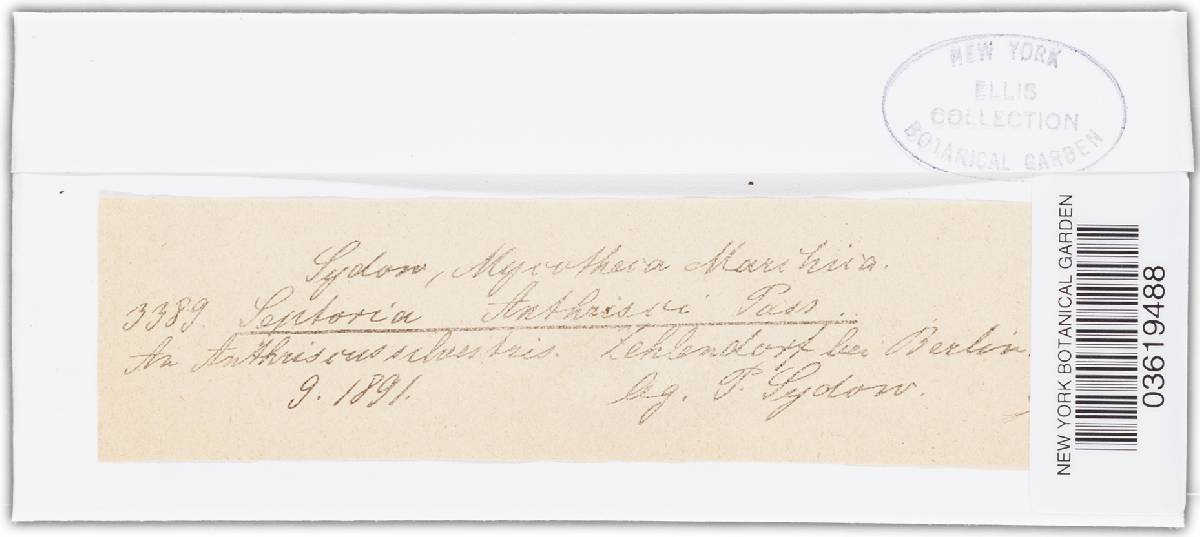 NEW YORK
ELLIS
COLLECTION
BOTANICAL GARDEN
Sydow, Mycotheca Marchica.
3389. Septoria Anthrisci Pass.
An Anthriscus silvestris. Zehlendorf bei Berlin.
9. 1891. leg. P. Sydow.
NEW YORK BOTANICAL GARDEN
03619488